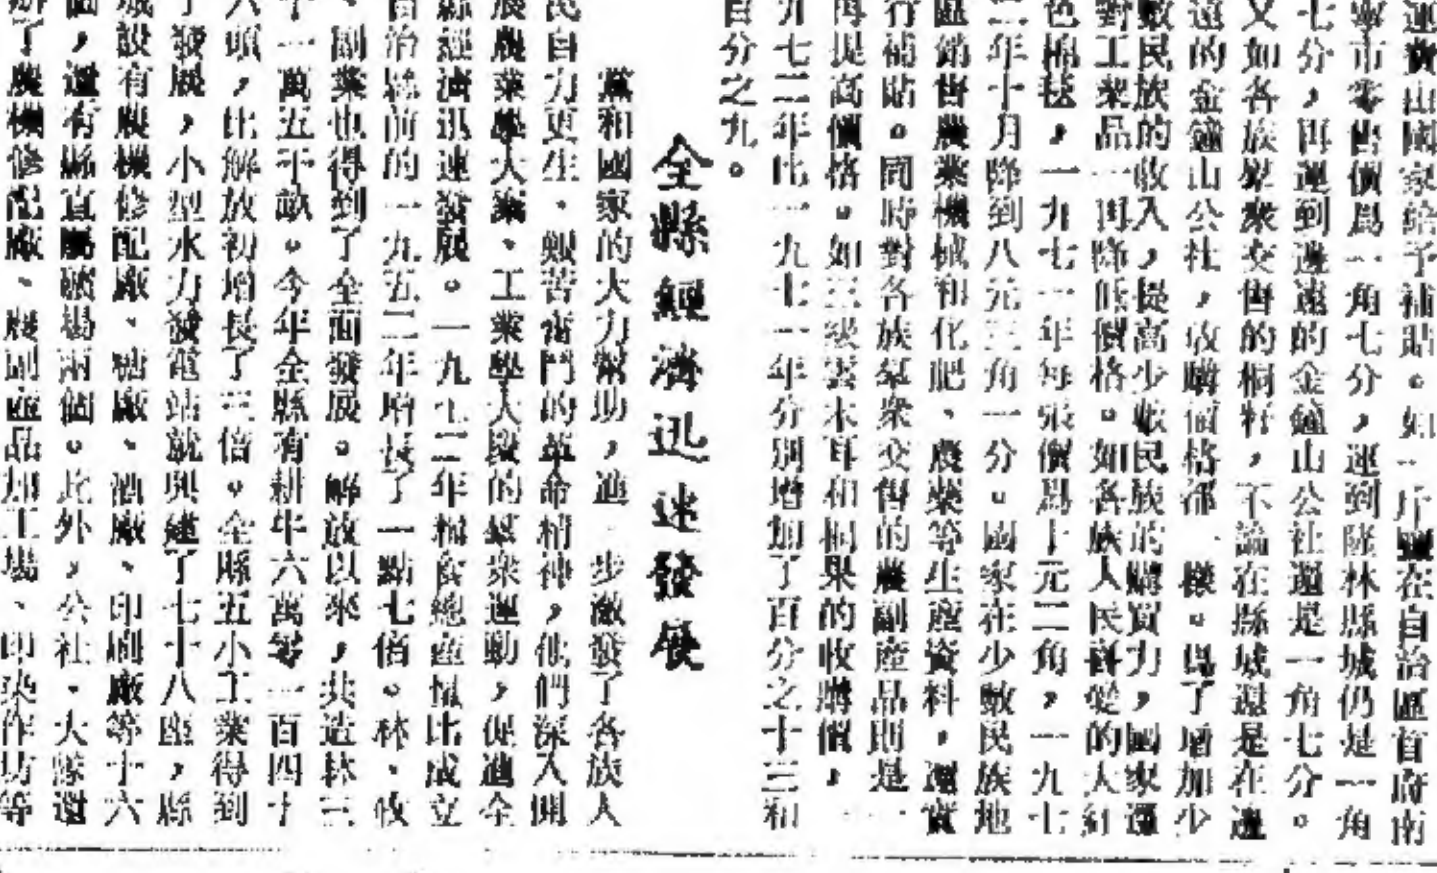 運費由國家給予補貼。如一斤鹽在自治區首府南
寧市零售價爲一角七分，運到隆林縣城仍是一角
七分，再運到邊遠的金鐘山公社還是一角七分。
又如各族羣衆交售的桐籽，不論在縣城還是在邊
遠的金鐘山公社，收購價格都一樣。爲了增加少
數民族的收入，提高少數民族的購買力，國家還
對工業品一再降低價格。如各族人民喜愛的大紅
色棉毯，一九七一年每張價爲十元二角，一九七
二年十月降到八元三角一分。國家在少數民族地
區銷售農業機械和化肥、農藥等生産資料，還實
行補貼。同時對各族羣衆交售的農副産品則是一
再提高價格。如三級雲木耳和桐果的收購價，一
九七二年比一九七一年分別增加了百分之十三和
百分之九。
全縣經濟迅速發展
黨和國家的大力幫助，進一步激發了各族人
民自力更生、艱苦奮鬥的革命精神，他們深入開
展農業學大寨、工業學大慶的羣衆運動，促進全
縣經濟迅速發展。一九七二年糧食總産量比成立
自治縣前的一九五二年增長了一點七倍。林、牧
、副業也得到了全面發展。解放以來，共造林三
十一萬五千畝。今年全縣有耕牛六萬零一百四十
六頭，比解放初增長了三倍。全縣五小工業得到
了發展，小型水力發電站就興建了七十八座，縣
城設有農機修配廠、糖廠、酒廠、印刷廠等十六
個，還有縣直屬礦場兩個。此外，公社、大隊還
辦了農機修配廠、農副産品加工場、印染作坊等